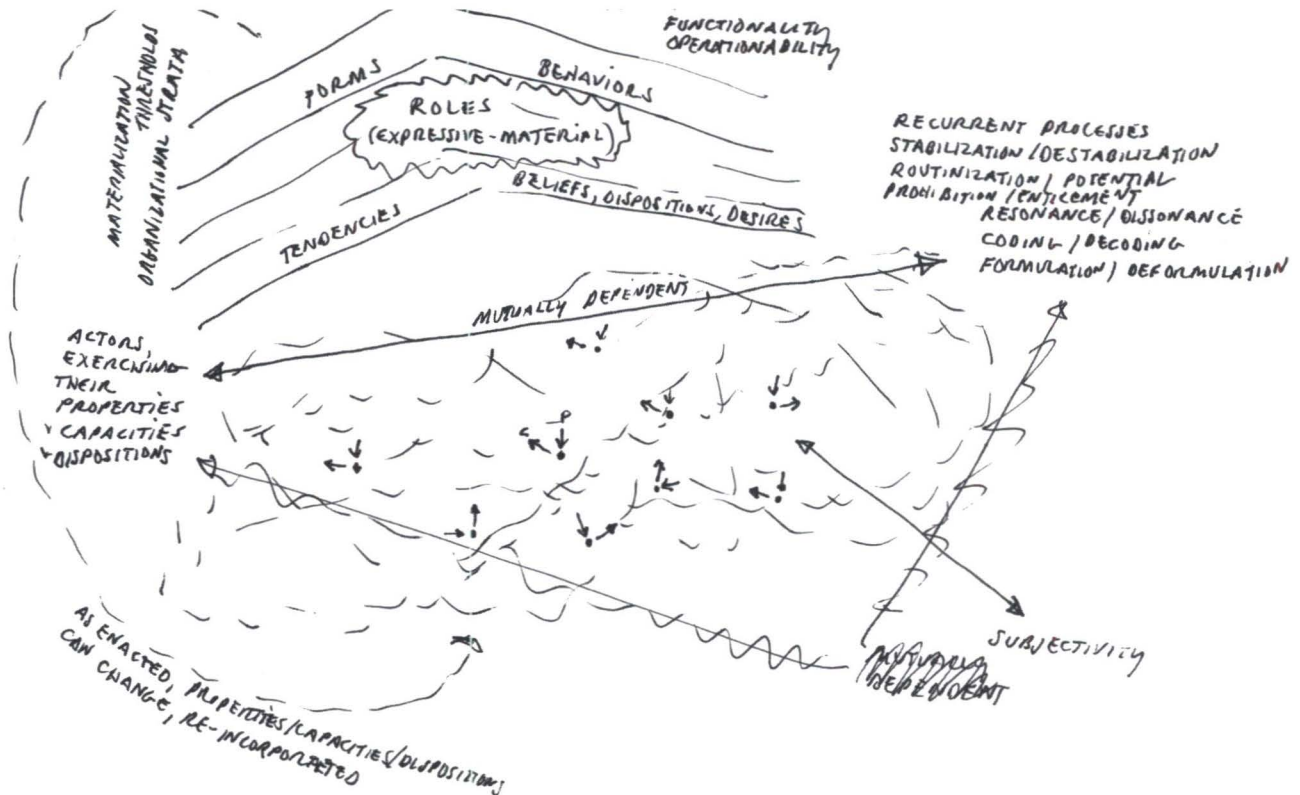 FUNCTIONALITY
OPERATIONABILITY
MATERIALIZATION
THRESHOLDS
ORGANIZATIONAL STRATA
FORMS
BEHAVIORS
ROLES
(EXPRESSIVE-MATERIAL)
TENDENCIES
BELIEFS, DISPOSITIONS, DESIRES
RECURRENT PROCESSES
STABILIZATION/DESTABILIZATION
ROUTINIZATION/POTENTIAL
PROHIBITION/ENTICEMENT
RESONANCE/DISSONANCE
CODING/DECODING
FORMULATION/DEFORMULATION
MUTUALLY DEPENDENT
ACTORS,
EXERCISING
THEIR
PROPERTIES
CAPACITIES
DISPOSITIONS
P
C
SUBJECTIVITY
MUTUALLY
DEPENDENT
AS ENACTED, PROPERTIES/CAPACITIES/DISPOSITIONS
CAN CHANGE, RE-INCORPORATED